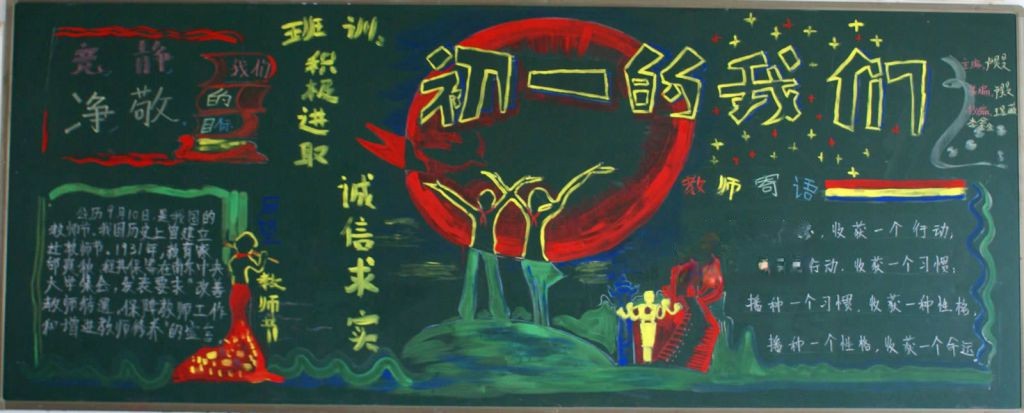 竞 静
净 敬
我们
的
目标
班训:
积极进取
诚信求实
初一的我们
教师寄语
收获一个行动,
行动,收获一个习惯;
播种一个习惯,收获一种性格,
播种一个性格,收获一个命运
教师节
公历9月10日是我国的
教师节,我国历史上曾建立
过教师节,1931年,教育家
大学集会,发表要求"改善
教师待遇,保障教师工作
和增进教师修养"的宣言
主编: